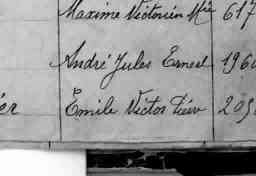 Maxime Victorien Mie 617
André Jules Ernest 196
Emile Victor 205